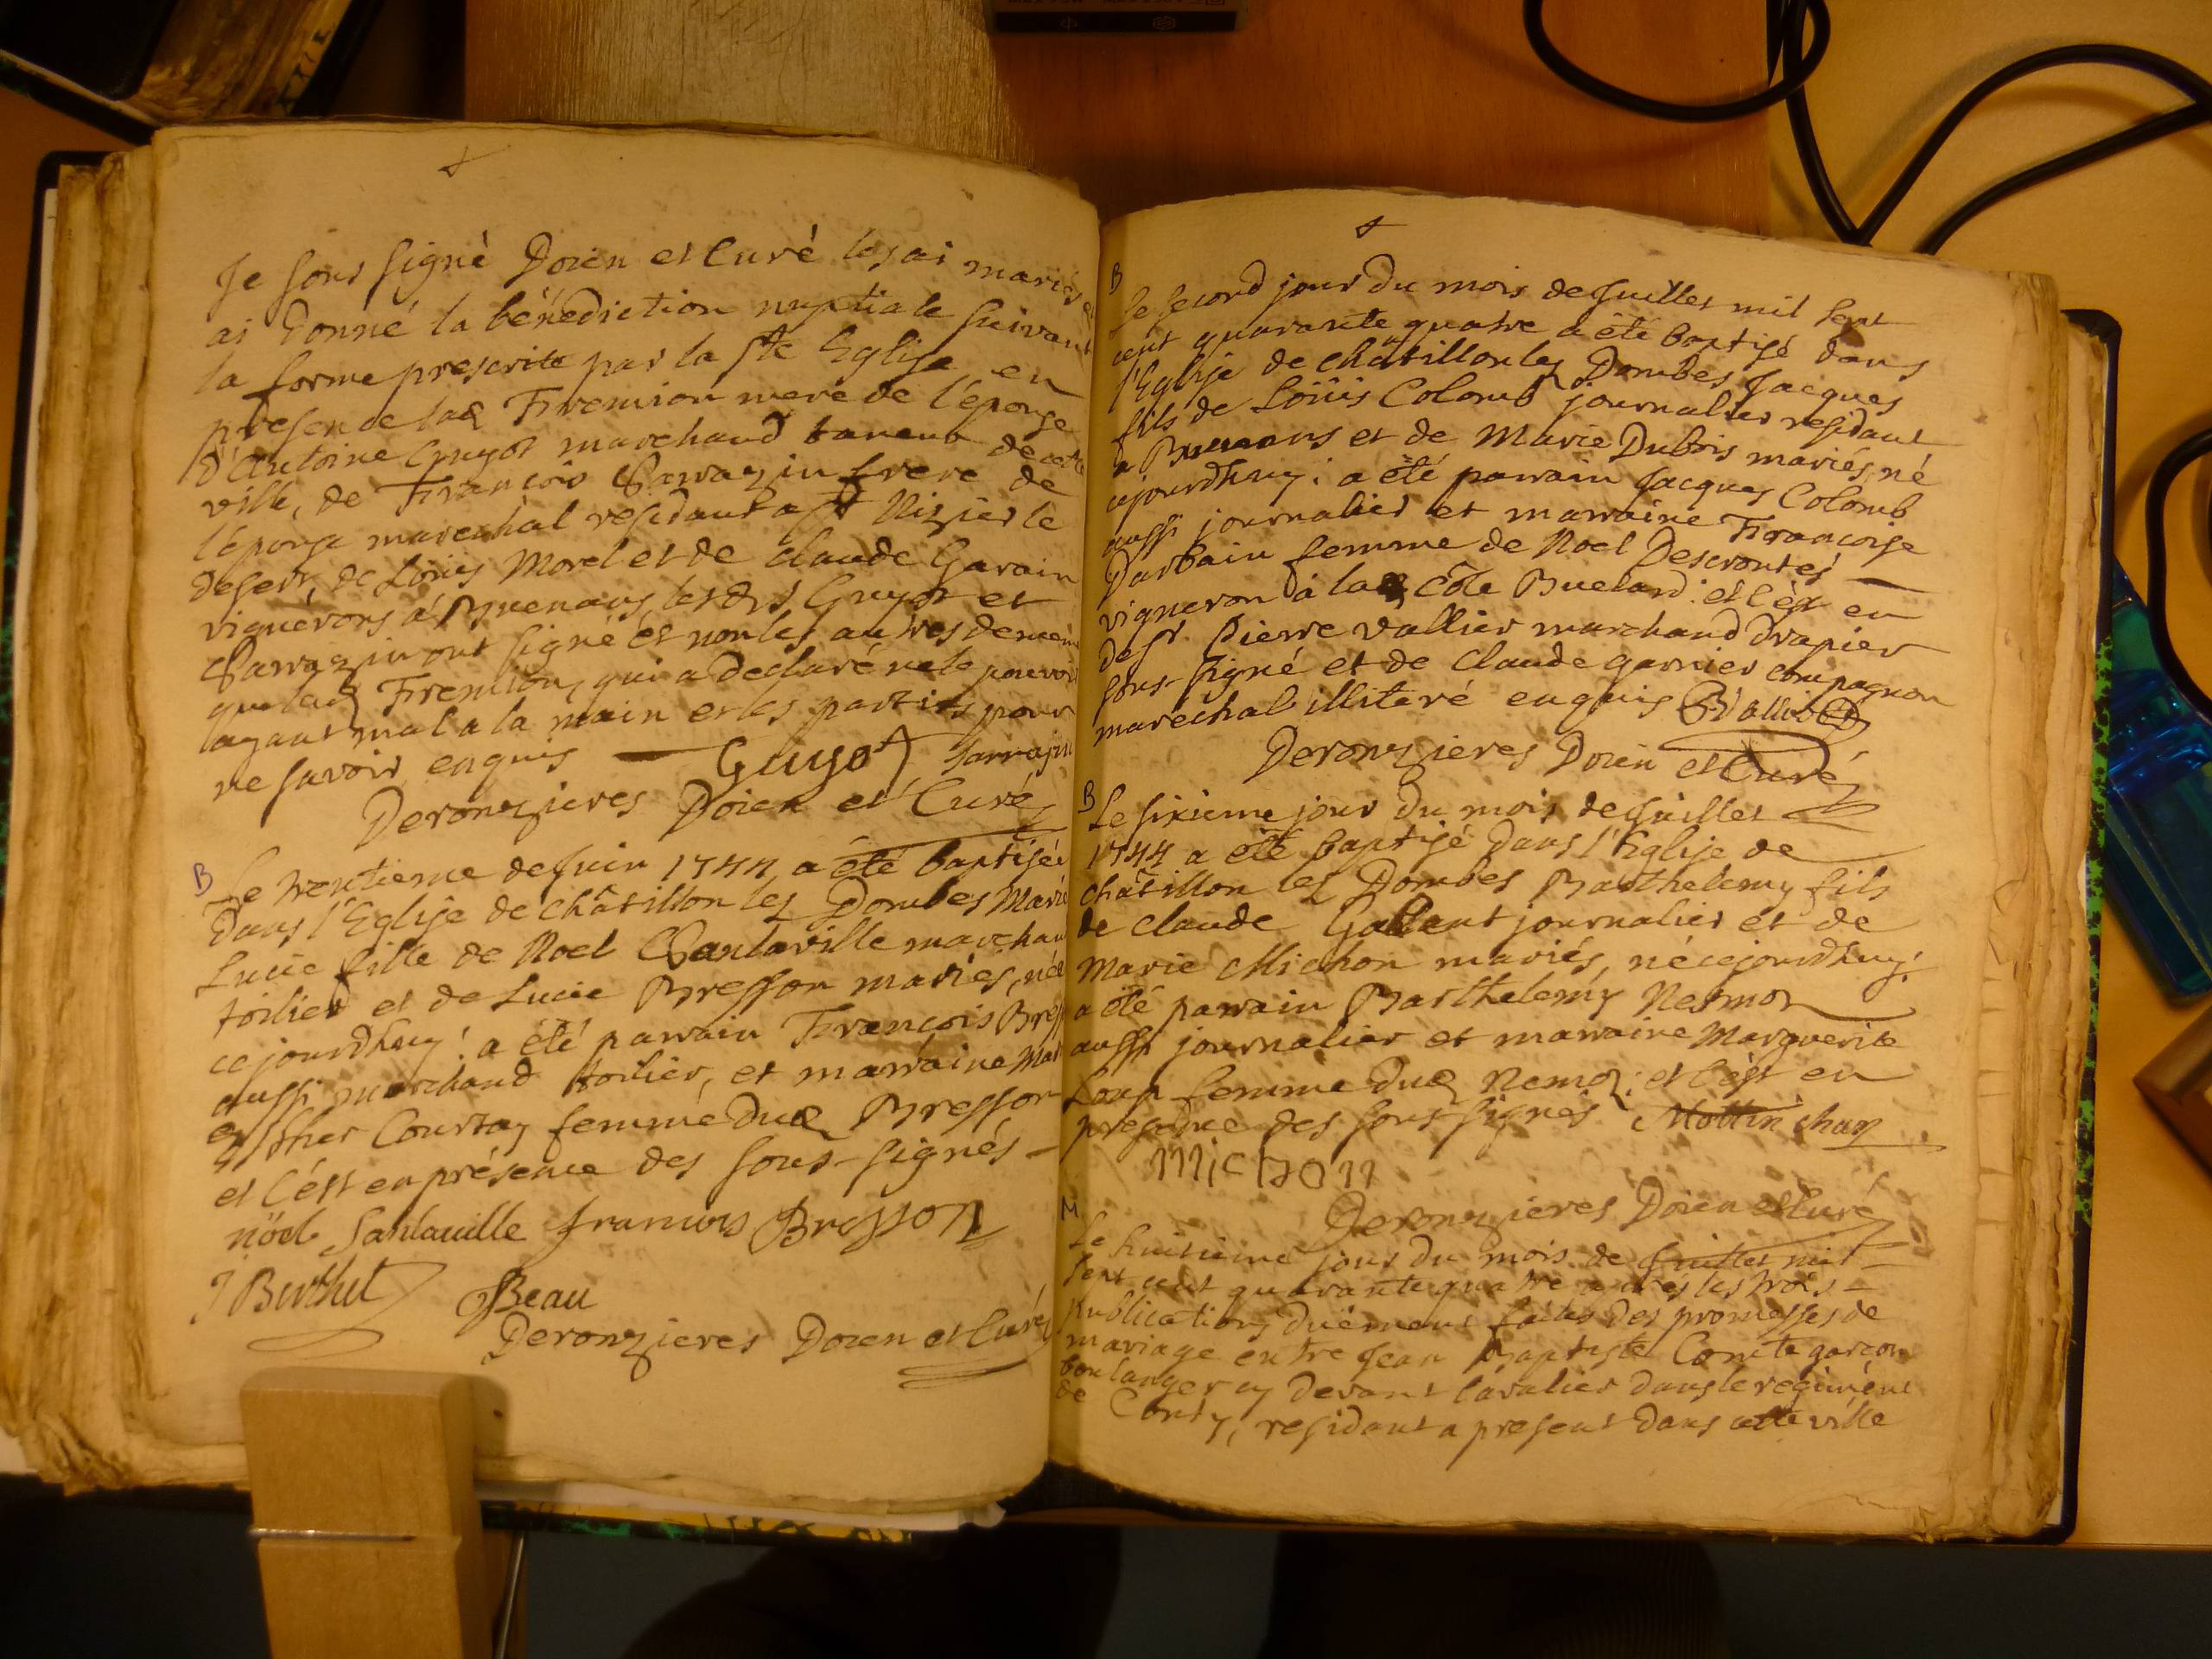 Je sous signé Doïen et Curé les ai mariés et
ai donné la bénédiction nuptiale suivant
la forme prescrite par la Ste Eglise en
presence lad Fremion mere de l'épouse
d'Antoine Guyot marchand taneur de cette
ville, de François Sarrazin frere de
l'épouse marechal residant a St Nizier le
desert, de Loüis Morel et de Claude Garain
vignerons á Buenans, lesdts Guyot et
Sarrazin ont signé et non les autres de meme
que lad Fremion, qui a declaré ne le pouvoir
ayant mal a la main et les parties pour
ne savoir enquis Guyot Sarrasin
Deronzieres Doïen et Curé
B
Le trentieme de Juin 1744 a été baptisée
dans l'Eglise de châtillon les Dombes Marie
Lucie fille de Noel Santaville marchand
toilier et de Lucie Bresson mariés, née
cejourdhuy: a été parrain François Bress
aussi marchand toilier, et marraine Mar
Esther Courtay femme dud Bresson
et c'ést en présence des sous-signés
nöel Santauille francois Bresson
J Berthet Beau
Deronzieres Doïen et Curé
B
Le second jour du mois de Juillet mil sept
cent quarante quatre a été baptisé dans
l'Eglise de châtillon les Dombes Jacques
fils de Loüis Colomb journalier residant
a Buenans et de Marie Dubois mariés, né
cejourdhuy: a été parrain Jacques Colomb
aussi journalier et marraine Francoise
Darbain femme de Noel Descroutes
vigneron á la Côte Buelard: et c'ést en
de sr. Pierre Vallier marchand drapier
sous-signé et de Claude garnier compagnon
marechal illiteré enquis Vallier
Deronzieres Doïen et Curé
B
Le sixieme jour du mois de Juillet
1744 a été baptisé dans l'Eglise de
châtillon les Dombes Barthelemy fils
de Claude Gallant journalier et de
Marie Michon mariés, né cejourdhuy:
a été parrain Barthelemy Nesmoz
aussi journalier et marraine Marguerite
Loup femme dud Nemoz: et c'ést en
presence des sous-signés Mottin
michon
Deronzieres Doïen et Curé
M
Le huitieme jour du mois de Juillet mil
sept cent quarante quatre aprés les trois
publications düement faites des promesses de
mariage entre Jean Baptiste Comte garcon
boulanger cy devant Cavalier dans le regiment
de Conty, residant a present dans cette ville